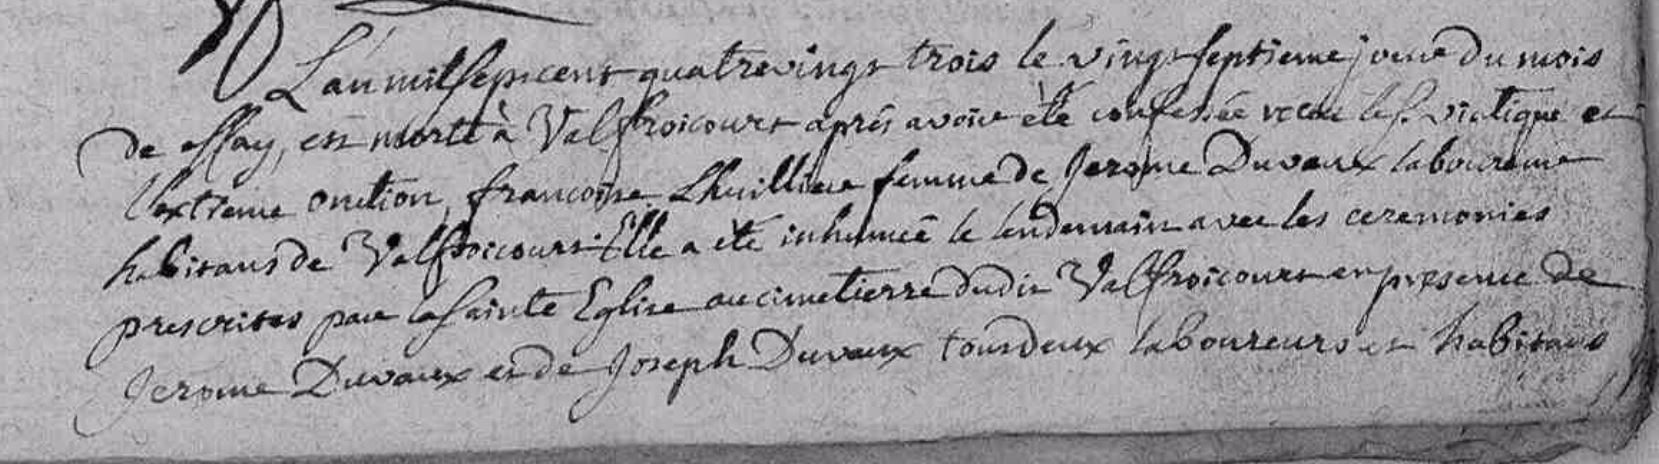 L'an mil sept cent quatre vingt trois le vingt septieme jour du mois
de may, est morte à Valfroicourt aprés avoir eté confessée recu le s. viatique et
l'extreme onction, francoise Lhuillier femme de Jerome Duvaux laboureur
habitans de Valfroicourt. Elle a eté inhumée le lendemain avec les ceremonies
prescrites par la Sainte Eglise au cimetierre dudit Valfroicourt en presence de
Jerome Duvaux et de Joseph Duvaux tous deux laboureurs et habitans